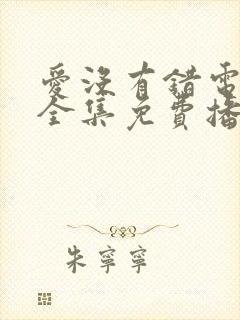 愛沒有錯電
全集免費播
朱寧寧